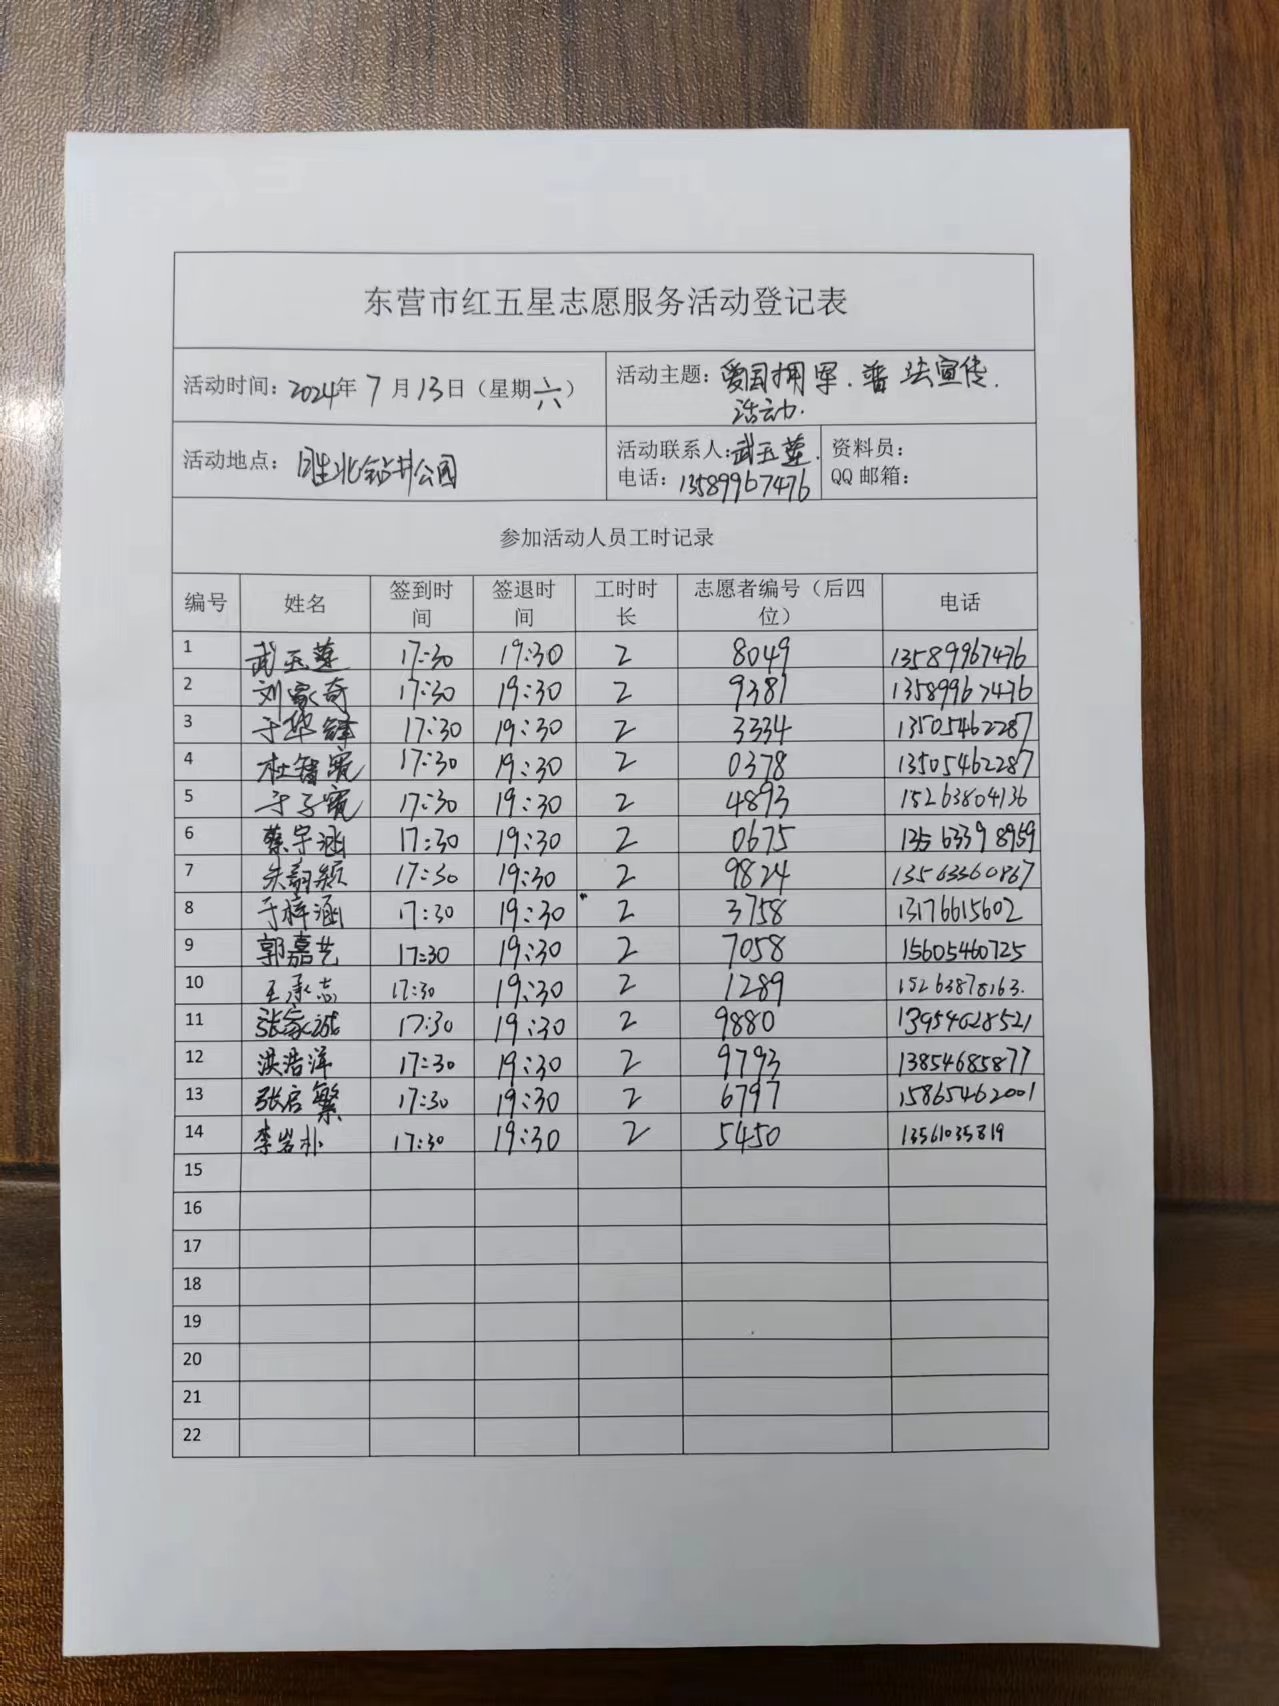 东营市红五星志愿服务活动登记表
活动时间：2024年7月13日（星期六） 活动主题：爱国拥军.普法宣传.
活动.
活动地点：胜北钻井公园 活动联系人：武玉莲. 资料员：
电话：13589967476 QQ邮箱：
参加活动人员工时记录
编号 姓名 签到时间 签退时间 工时时长 志愿者编号（后四位） 电话
1 武玉莲 17:30 19:30 2 8049 13589967476
2 刘家奇 17:30 19:30 2 9381 13589967476
3 于华锋 17:30 19:30 2 3334 13505462287
4 杜锦宽 17:30 19:30 2 0378 13505462287
5 于子宽 17:30 19:30 2 4893 15263804136
6 蔡宇涵 17:30 19:30 2 0675 13563398959
7 朱韵颖 17:30 19:30 2 9824 13563360867
8 于梓涵 17:30 19:30 2 3758 13176615602
9 郭嘉艺 17:30 19:30 2 7058 15605460725
10 王承志 17:30 19:30 2 1289 15263878163.
11 张家诚 17:30 19:30 2 9880 13954628521
12 洪浩洋 17:30 19:30 2 9793 13854685877
13 张启繁 17:30 19:30 2 6797 15865462001
14 李岩朴 17:30 19:30 2 5450 13561035819
15
16
17
18
19
20
21
22